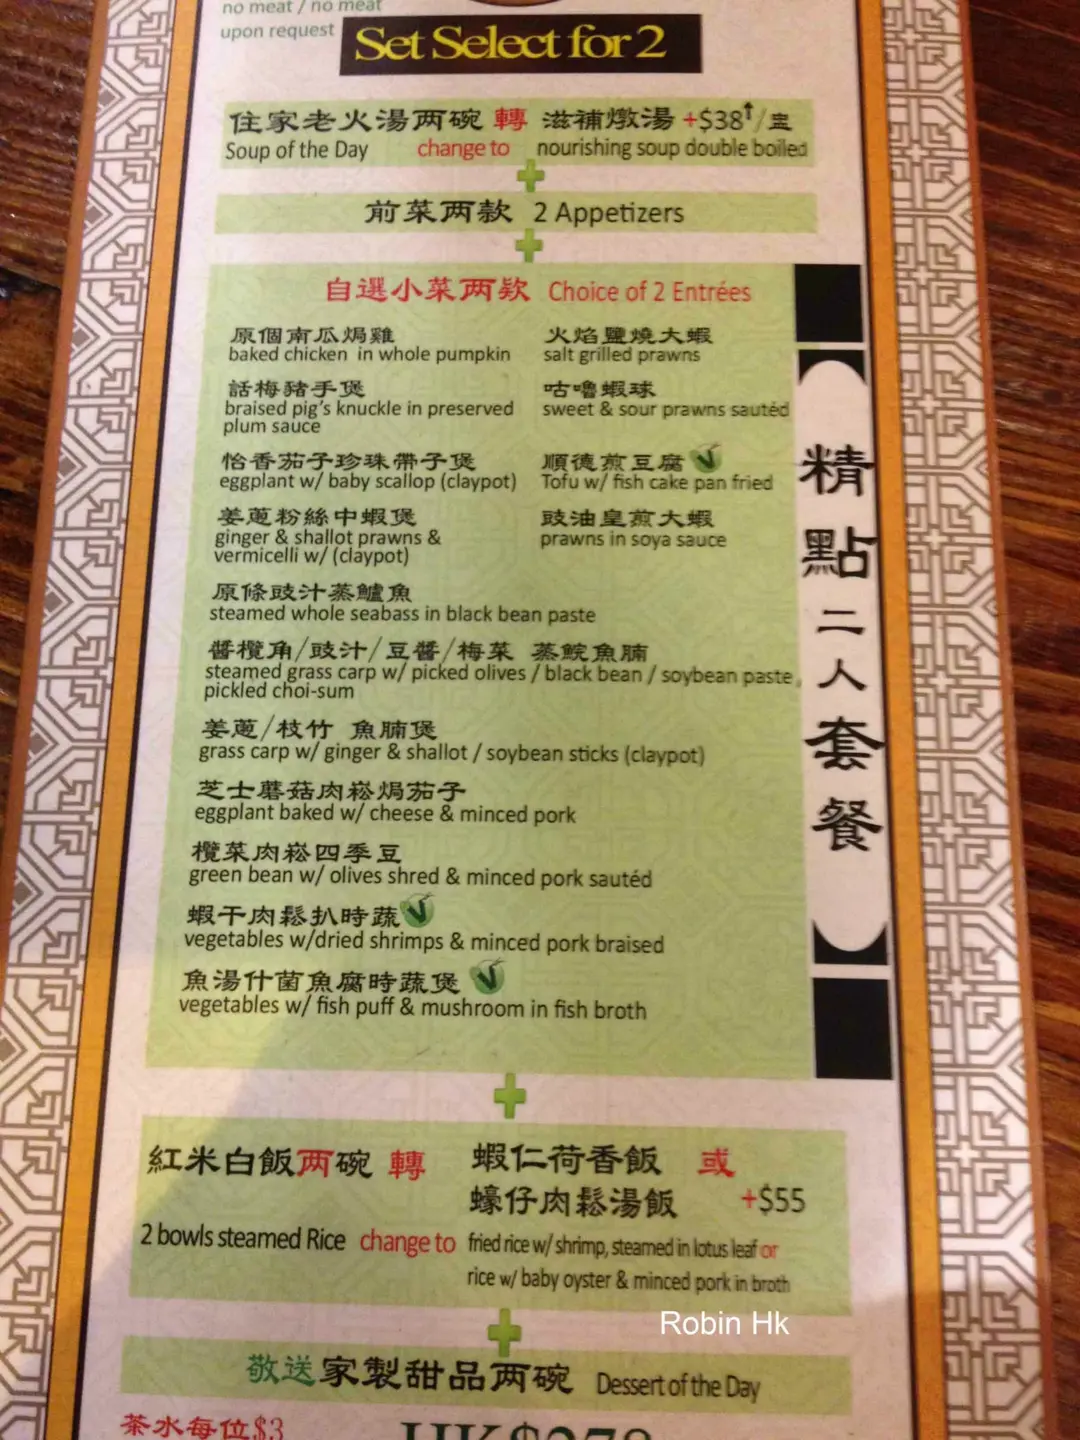 no meat / no meat
upon request
Set Select for 2
住家老火湯两碗 轉 滋補燉湯 +$38↑/盅
Soup of the Day change to nourishing soup double boiled
前菜两款 2 Appetizers
自選小菜两款 Choice of 2 Entrées
原個南瓜焗雞
baked chicken in whole pumpkin
火焰鹽燒大蝦
salt grilled prawns
話梅豬手煲
braised pig's knuckle in preserved
plum sauce
咕嚕蝦球
sweet & sour prawns sautéd
怡香茄子珍珠帶子煲
eggplant w/ baby scallop (claypot)
順德煎豆腐
Tofu w/ fish cake pan fried
姜蔥粉絲中蝦煲
ginger & shallot prawns &
vermicelli w/ (claypot)
豉油皇煎大蝦
prawns in soya sauce
原條豉汁蒸鱸魚
steamed whole seabass in black bean paste
醬欖角/豉汁/豆醬/梅菜 蒸鯇魚腩
steamed grass carp w/ picked olives / black bean / soybean paste,
pickled choi-sum
姜蔥/枝竹 魚腩煲
grass carp w/ ginger & shallot / soybean sticks (claypot)
芝士蘑菇肉崧焗茄子
eggplant baked w/ cheese & minced pork
欖菜肉崧四季豆
green bean w/ olives shred & minced pork sautéd
蝦干肉鬆扒時蔬
vegetables w/dried shrimps & minced pork braised
魚湯什菌魚腐時蔬煲
vegetables w/ fish puff & mushroom in fish broth
精點二人套餐
紅米白飯两碗 轉 蝦仁荷香飯 或
蠔仔肉鬆湯飯 +$55
2 bowls steamed Rice change to fried rice w/ shrimp, steamed in lotus leaf or
rice w/ baby oyster & minced pork in broth
Robin Hk
敬送家製甜品两碗 Dessert of the Day
茶水每位$3
HK$278